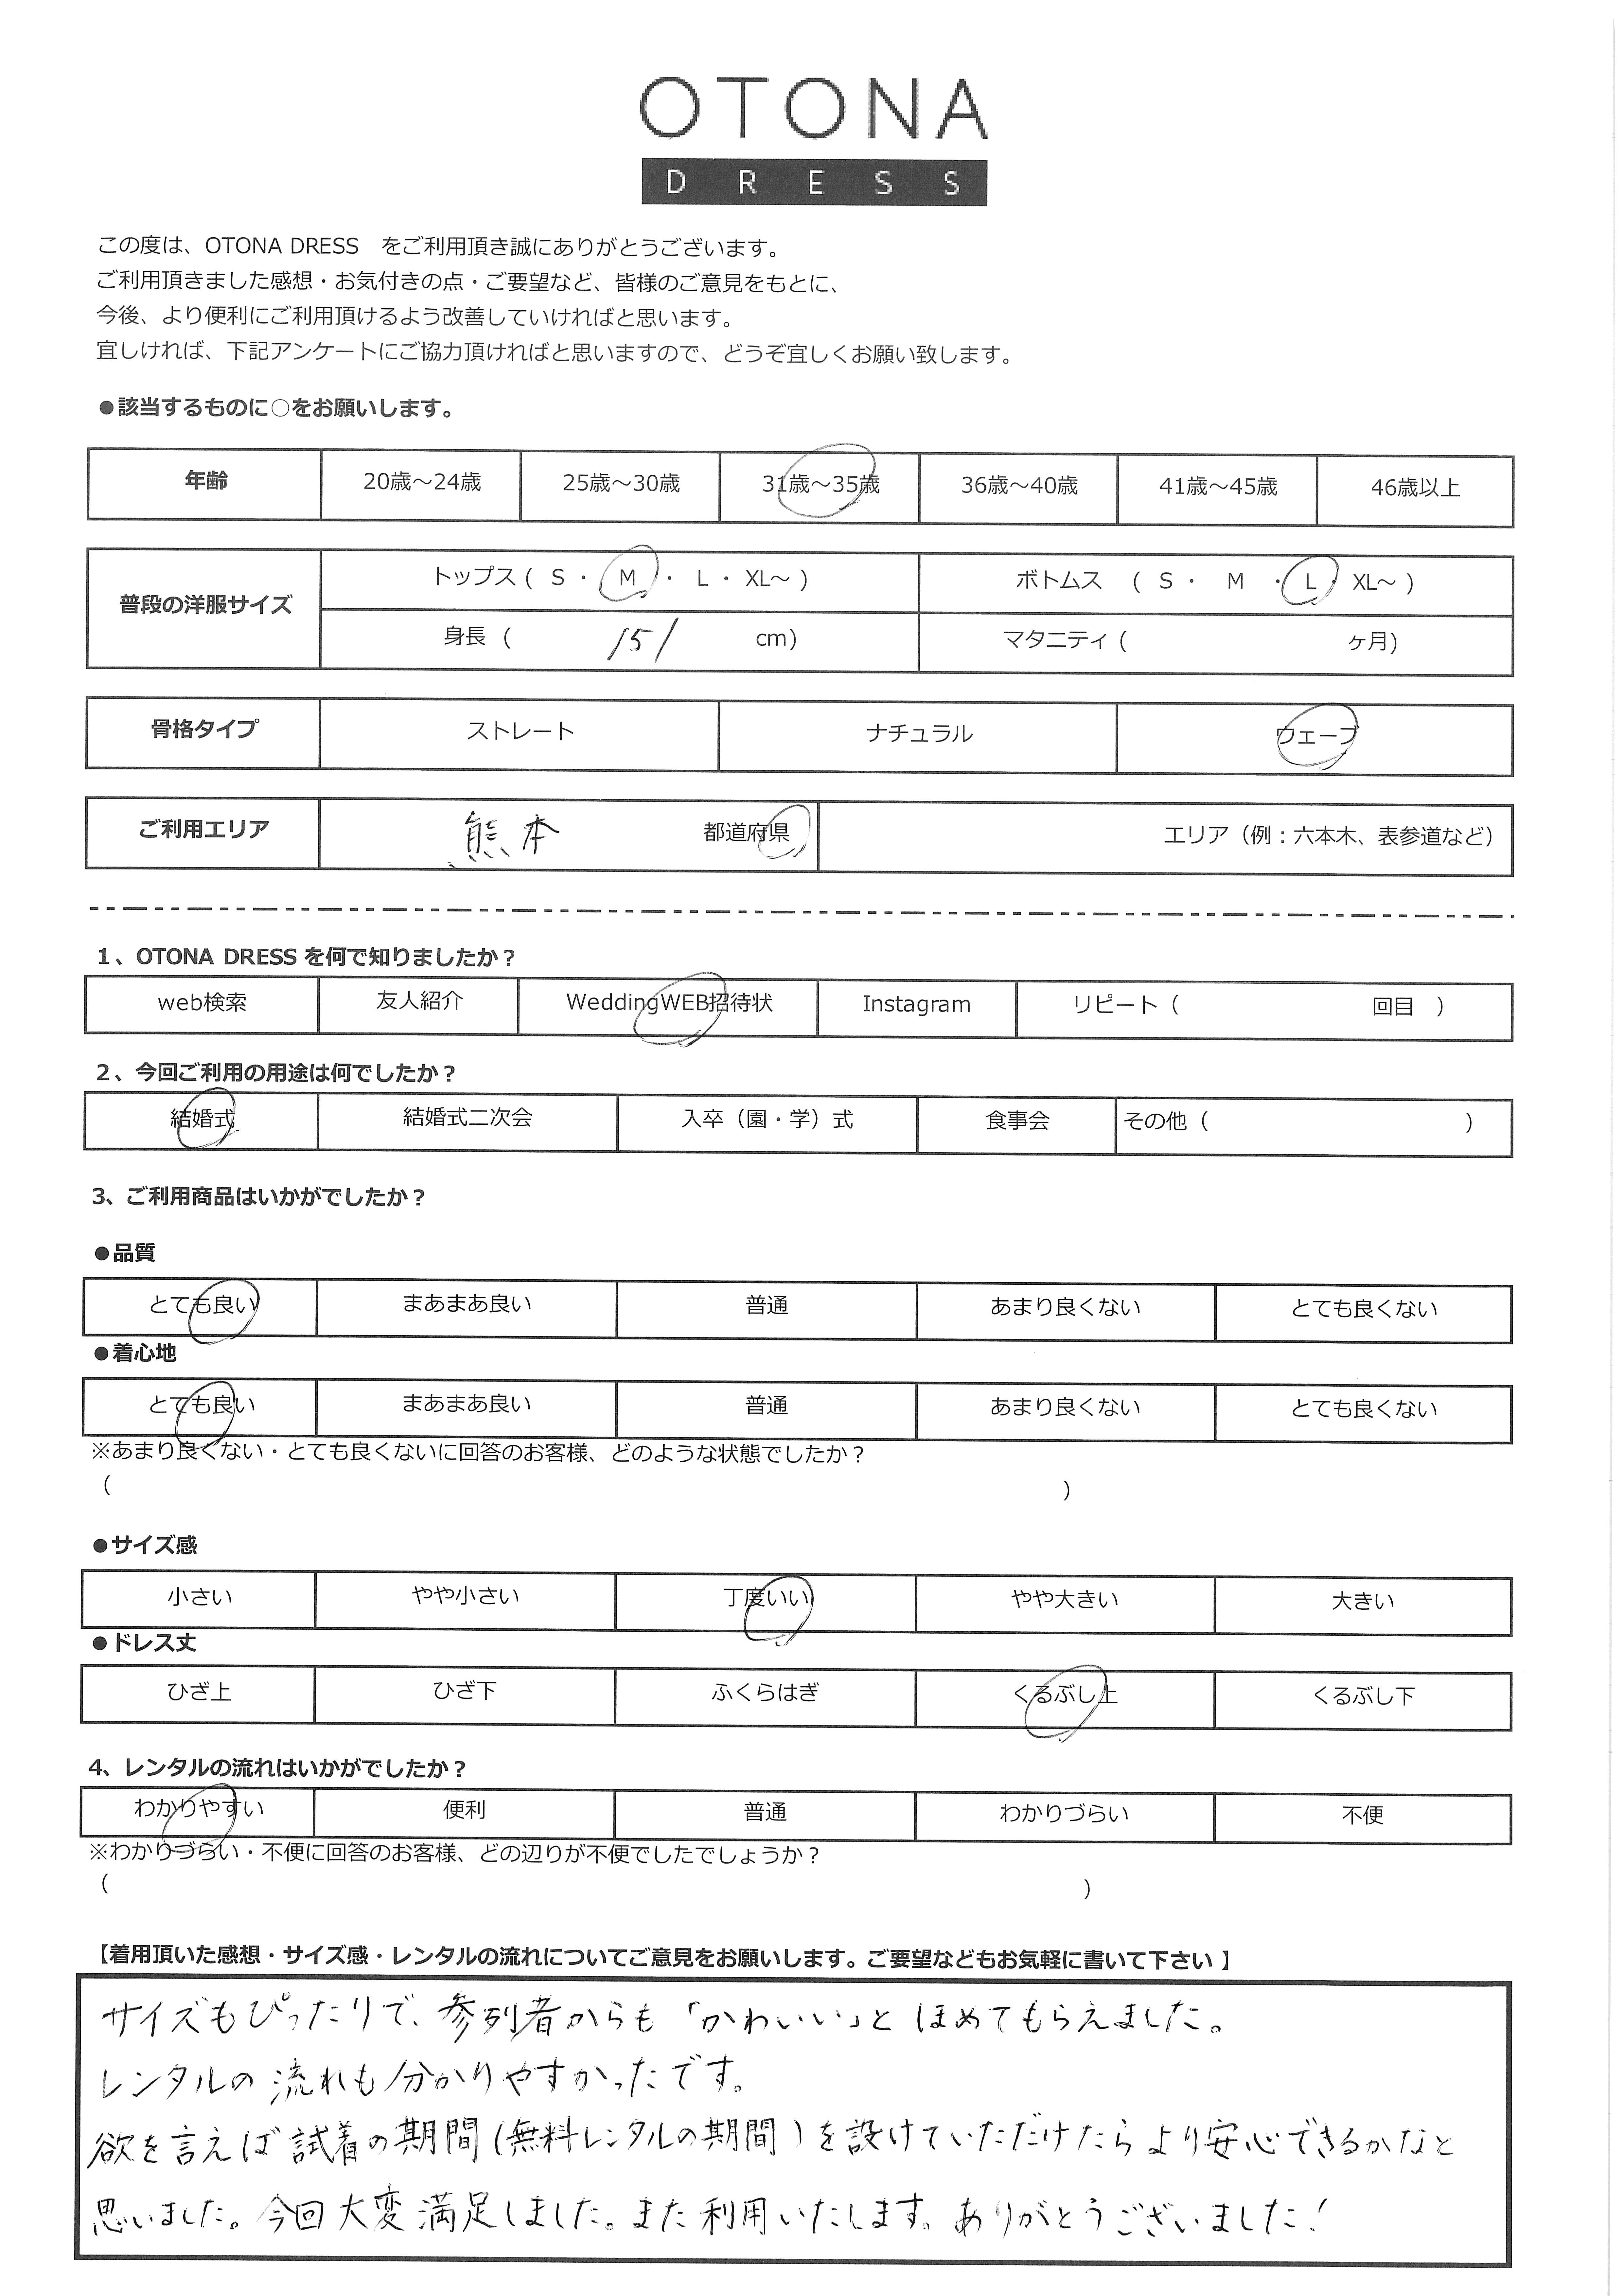 OTONA
DRESS
この度は、OTONA DRESS　をご利用頂き誠にありがとうございます。
ご利用頂きました感想・お気付きの点・ご要望など、皆様のご意見をもとに、
今後、より便利にご利用頂けるよう改善していければと思います。
宜しければ、下記アンケートにご協力頂ければと思いますので、どうぞ宜しくお願い致します。
●該当するものに○をお願いします。
年齢 20歳～24歳 25歳～30歳 31歳～35歳 36歳～40歳 41歳～45歳 46歳以上
普段の洋服サイズ トップス ( S ・ M ・ L ・ XL～ ) ボトムス ( S ・ M ・ L ・ XL～ )
身長 ( 151 cm) マタニティ ( ヶ月)
骨格タイプ ストレート ナチュラル ウェーブ
ご利用エリア 熊本 都道府県 エリア（例：六本木、表参道など）
1、OTONA DRESS を何で知りましたか？
web検索 友人紹介 WeddingWEB招待状 Instagram リピート（ 回目 ）
2、今回ご利用の用途は何でしたか？
結婚式 結婚式二次会 入卒（園・学）式 食事会 その他（ ）
3、ご利用商品はいかがでしたか？
●品質
とても良い まあまあ良い 普通 あまり良くない とても良くない
●着心地
とても良い まあまあ良い 普通 あまり良くない とても良くない
※あまり良くない・とても良くないに回答のお客様、どのような状態でしたか？
( )
●サイズ感
小さい やや小さい 丁度いい やや大きい 大きい
●ドレス丈
ひざ上 ひざ下 ふくらはぎ くるぶし上 くるぶし下
4、レンタルの流れはいかがでしたか？
わかりやすい 便利 普通 わかりづらい 不便
※わかりづらい・不便に回答のお客様、どの辺りが不便でしたでしょうか？
( )
【着用頂いた感想・サイズ感・レンタルの流れについてご意見をお願いします。ご要望などもお気軽に書いて下さい 】
サイズもぴったりで、参列者からも「かわいい」とほめてもらえました。
レンタルの流れも分かりやすかったです。
欲を言えば試着の期間(無料レンタルの期間)を設けていただけたらより安心できるかなと
思いました。今回大変満足しました。また利用いたします。ありがとうございました！